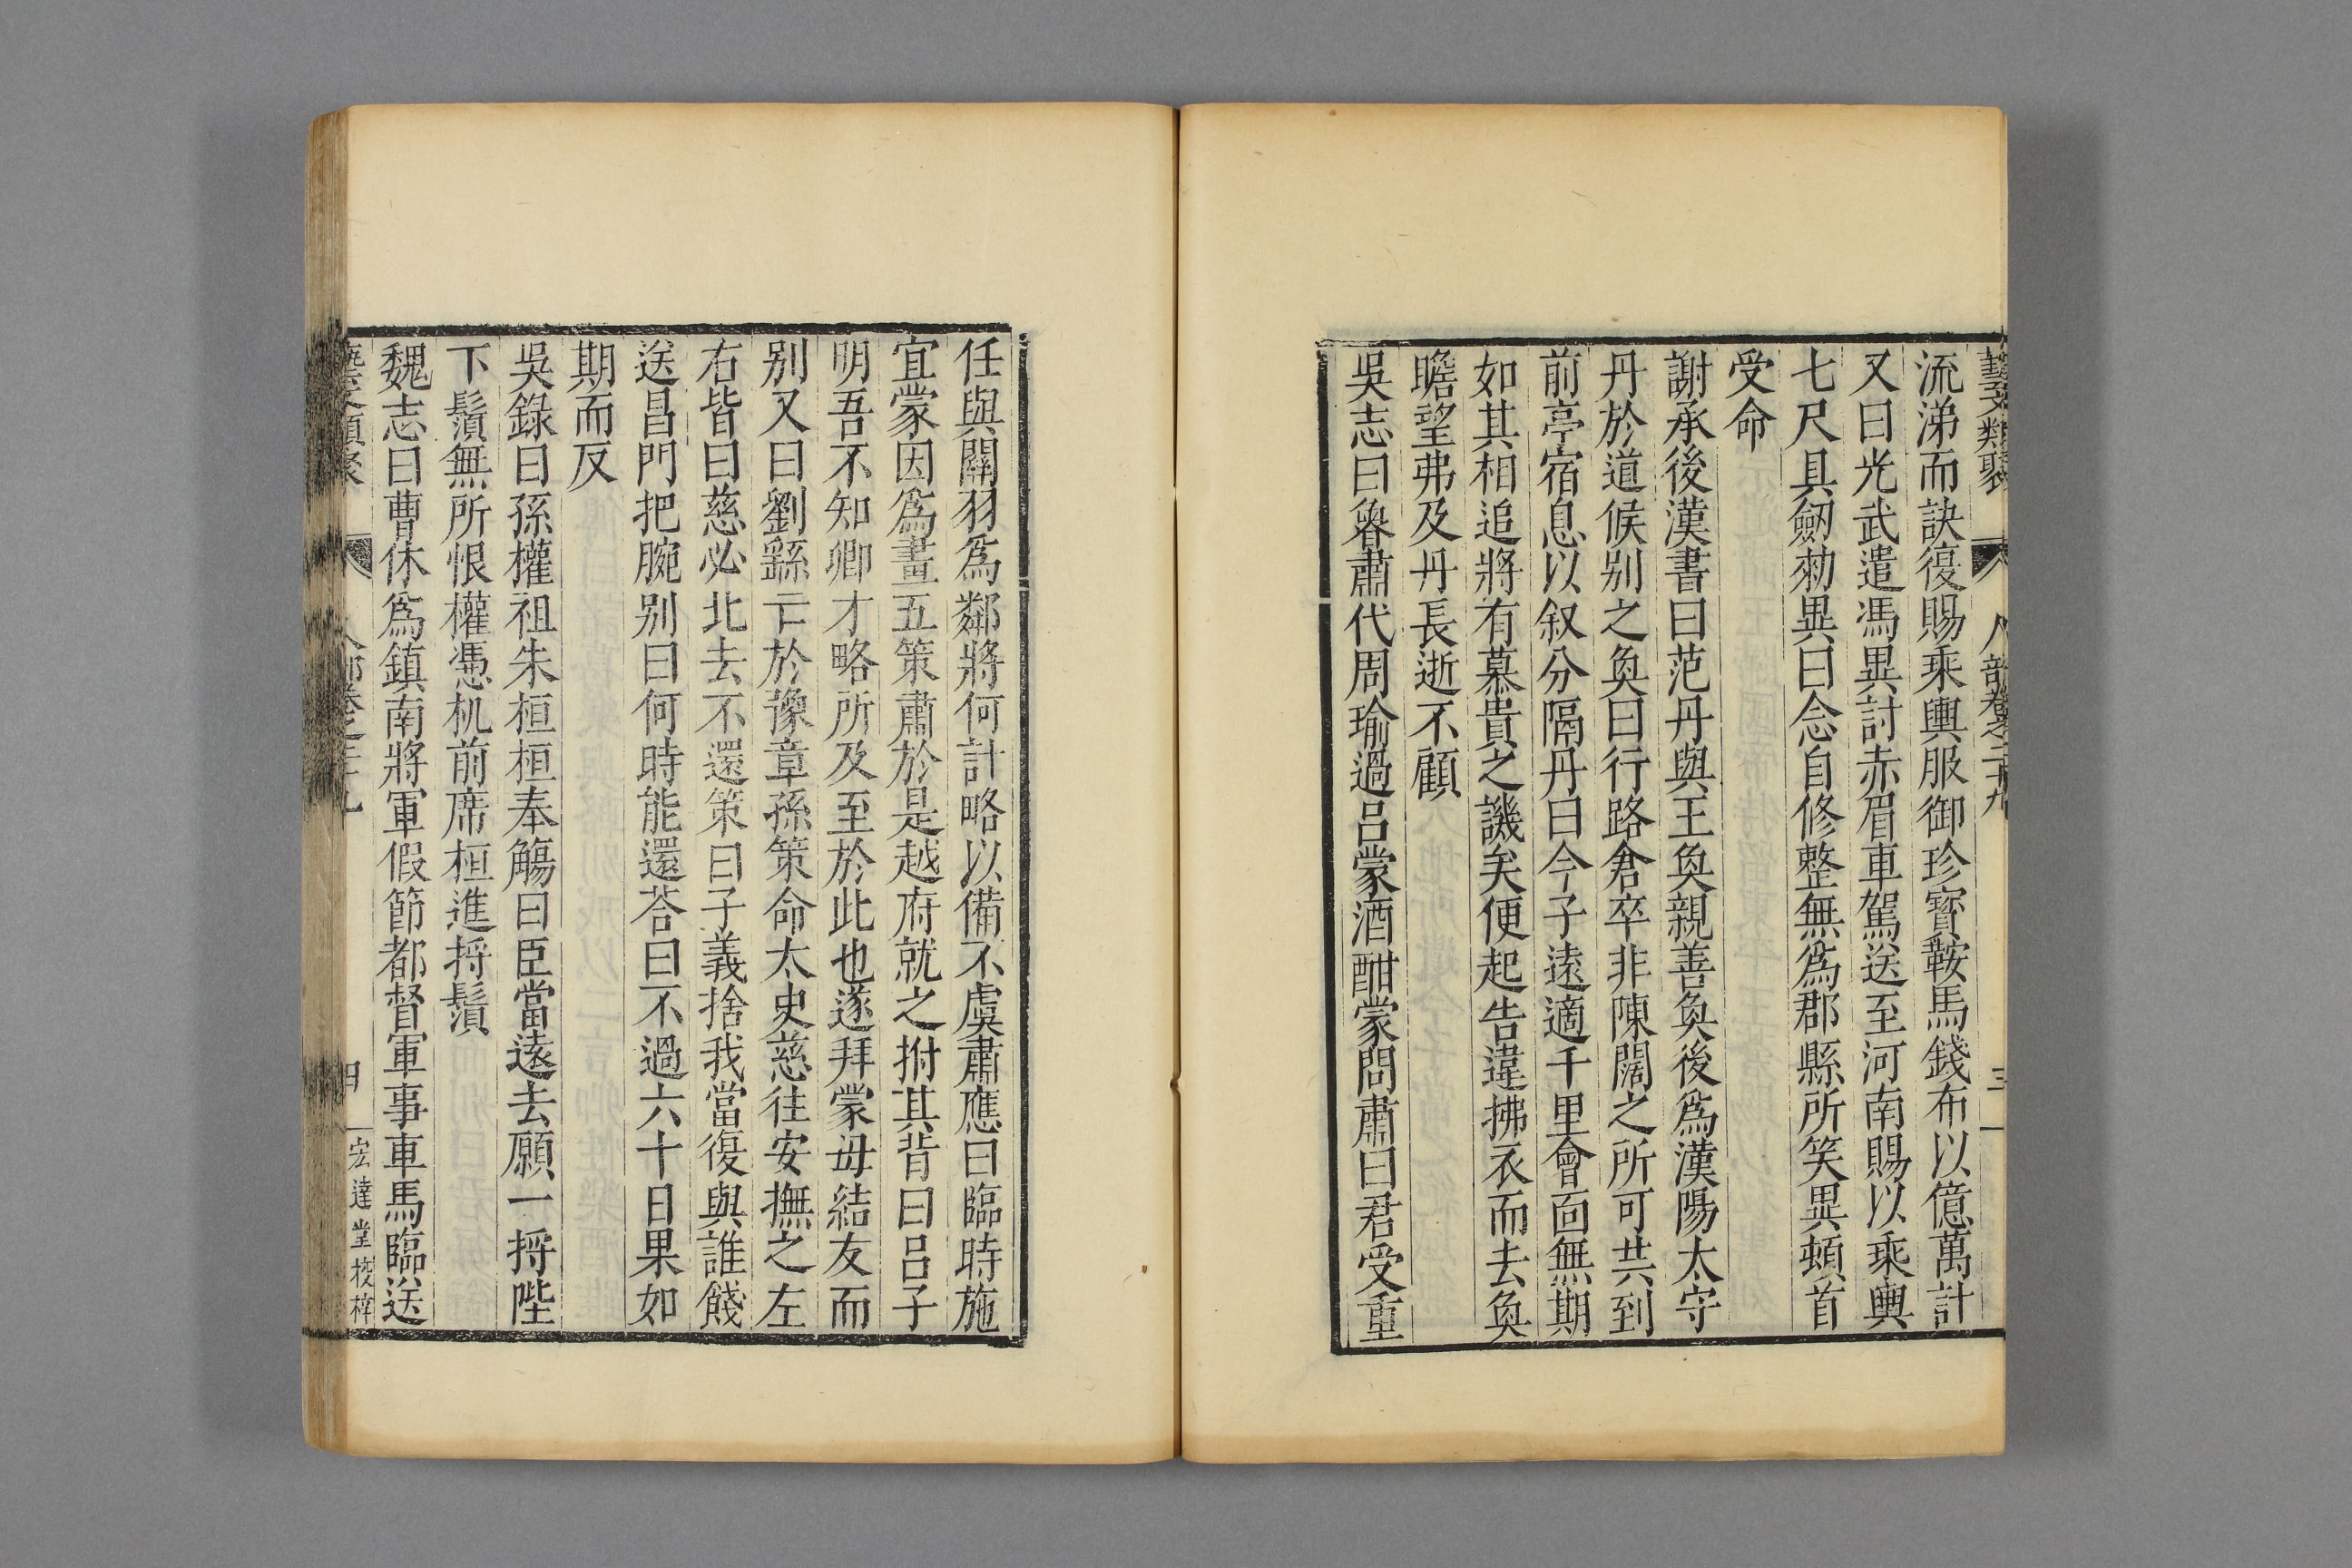 藝文類聚 人部卷之二十九 三
流涕而訣復賜乘輿服御珍寶鞍馬錢布以億萬計
又曰光武遣馮異討赤眉車駕送至河南賜以乘輿
七尺具劒勑異曰念自修整無爲郡縣所笑異頓首
受命
謝承後漢書曰范丹與王奐親善奐後爲漢陽太守
丹於道候别之奐曰行路倉卒非陳闊之所可共到
前亭宿息以叙分隔丹曰今子遠適千里會面無期
如其相追將有慕貴之譏矣便起告違拂衣而去奐
瞻望弗及丹長逝不顧
吳志曰魯肅代周瑜過吕蒙酒酣蒙問肅曰君受重
任與關羽爲鄰將何計略以備不虞肅應曰臨時施
宜蒙因爲畫五策肅於是越府就之拊其背曰吕子
明吾不知卿才略所及至於此也遂拜蒙毋結友而
别又曰劉繇亡於豫章孫策命太史慈往安撫之左
右皆曰慈必北去不還策曰子義捨我當復與誰餞
送昌門把腕别曰何時能還荅曰不過六十日果如
期而反
吳錄曰孫權祖朱桓桓奉觴曰臣當遠去願一捋陛
下鬚無所恨權憑机前席桓進捋鬚
魏志曰曹休爲鎮南將軍假節都督軍事車馬臨送
藝文類聚 人部卷之二十九 四 宏達堂校梓